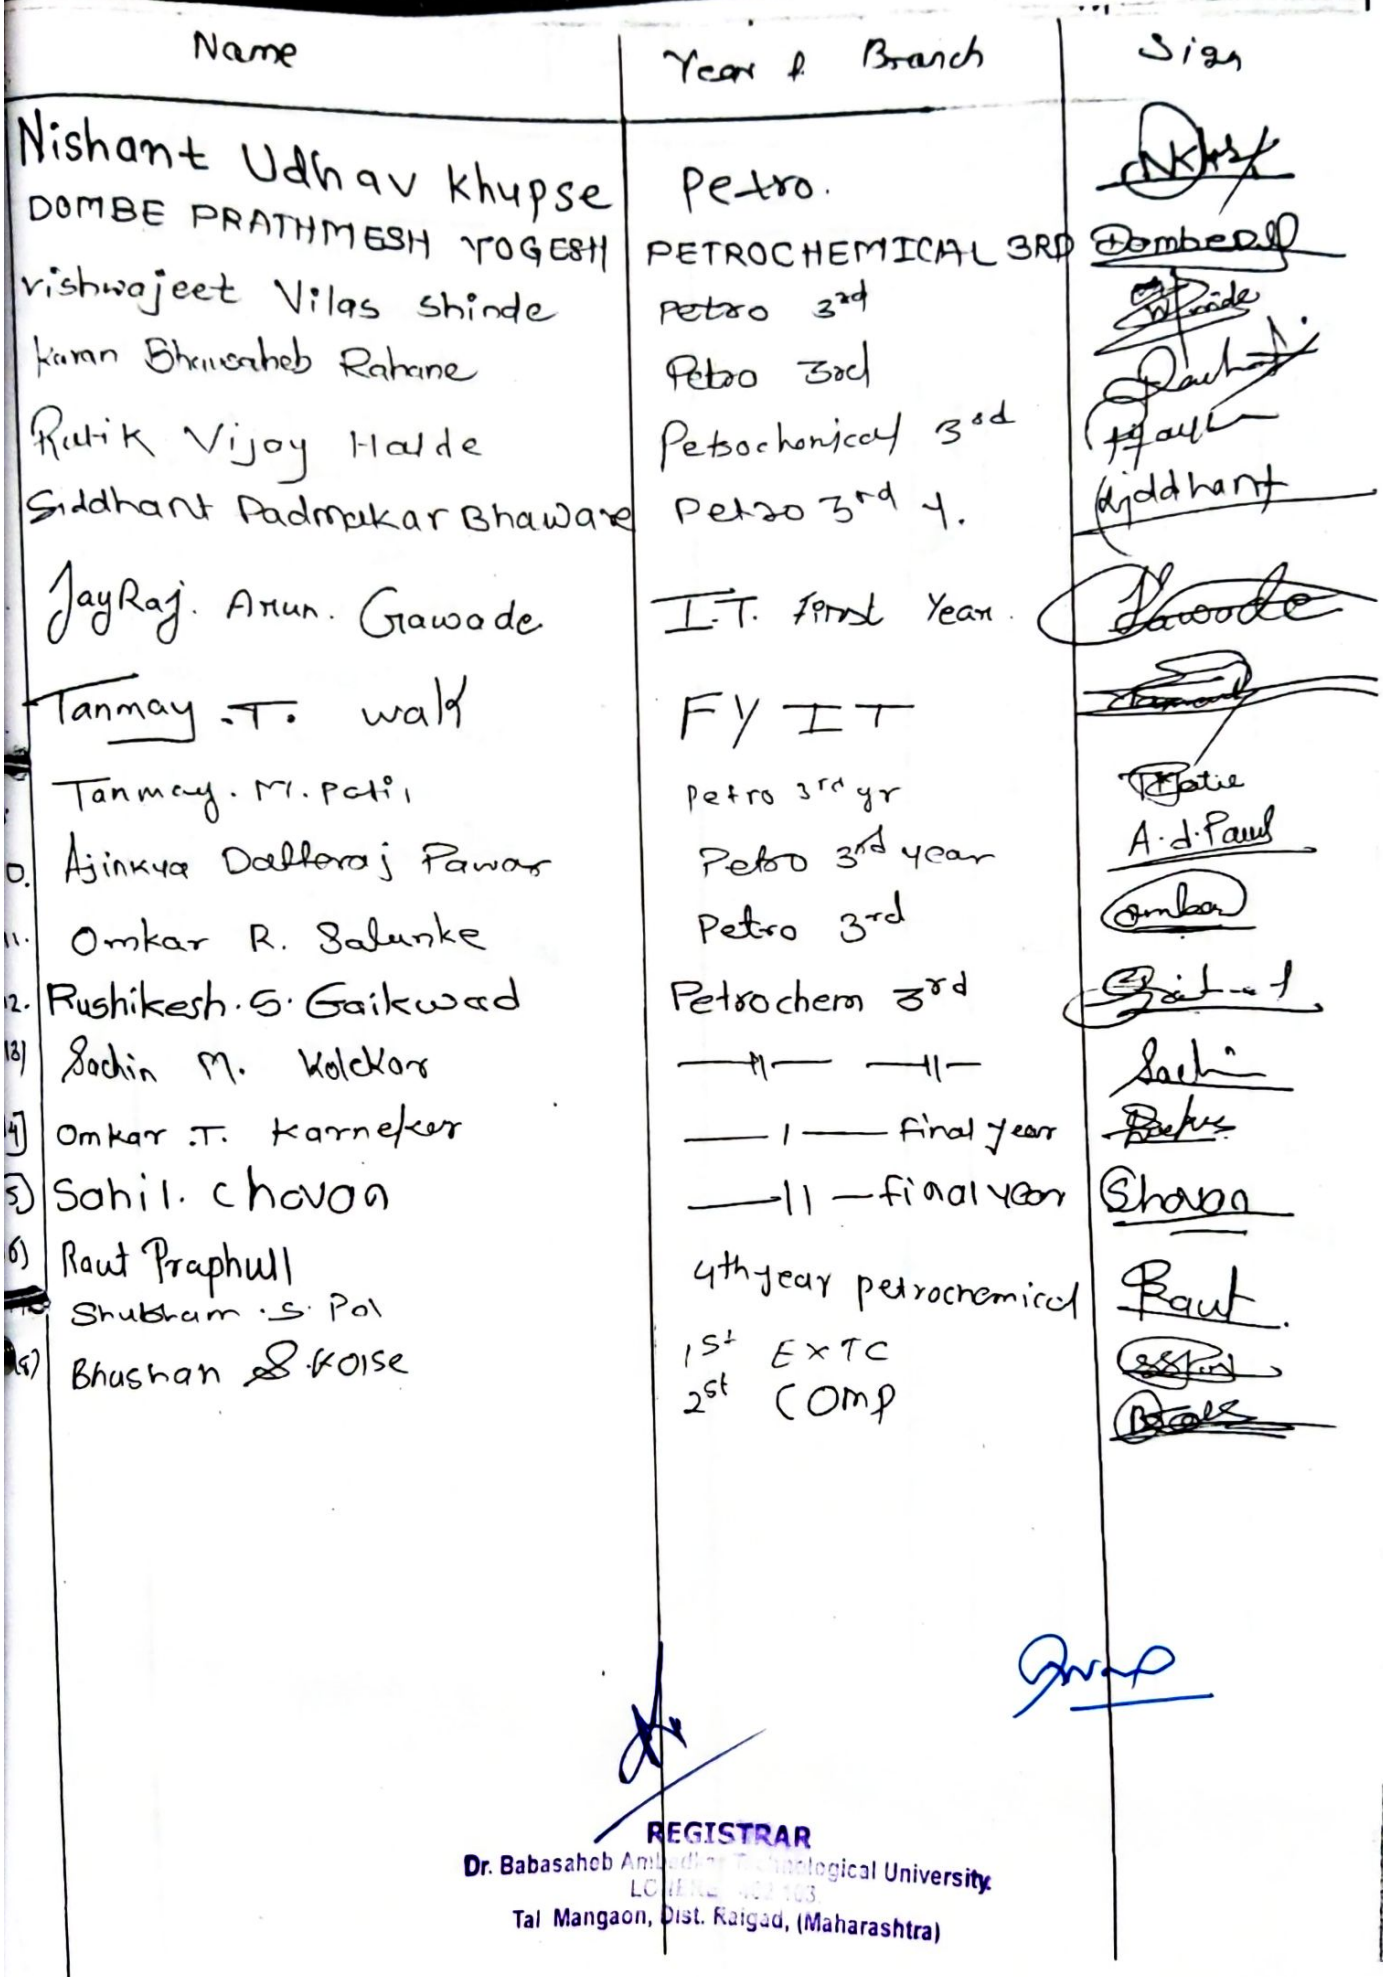 Name Year & Branch Sign
Nishant Udhav Khupse Petro.
DOMBE PRATHMESH YOGESH PETROCHEMICAL 3RD Dombe
vishwajeet Vilas Shinde Petro 3rd
Karan Bhausaheb Rahane Petro 3rd
Rutik Vijay Halde Petrochemical 3rd
Siddhant Padmakar Bhaware Petro 3rd Y. Siddhant
JayRaj. Arun. Gawade I.T. First Year. Gawade
Tanmay .T. walk FY IT
Tanmay. M. Patil Petro 3rd yr
0. Ajinkya Dattaraj Pawar Petro 3rd year A.d.Pawar
11. Omkar R. Salunke Petro 3rd Omkar
12. Rushikesh. S. Gaikwad Petrochem 3rd
13) Sachin M. Kolekar —11— —11— Sachin
4] Omkar .T. Karnekar —1— final year
5) Sahil. Chavan —11— final year Chavan
6) Raut Praphull 4th year petrochemical Raut
Shubham .S. Pol 1st EXTC
18) Bhushan S. Kolse 2st COMP
REGISTRAR
Dr. Babasaheb Ambedkar Technological University,
Tal Mangaon, Dist. Raigad, (Maharashtra)